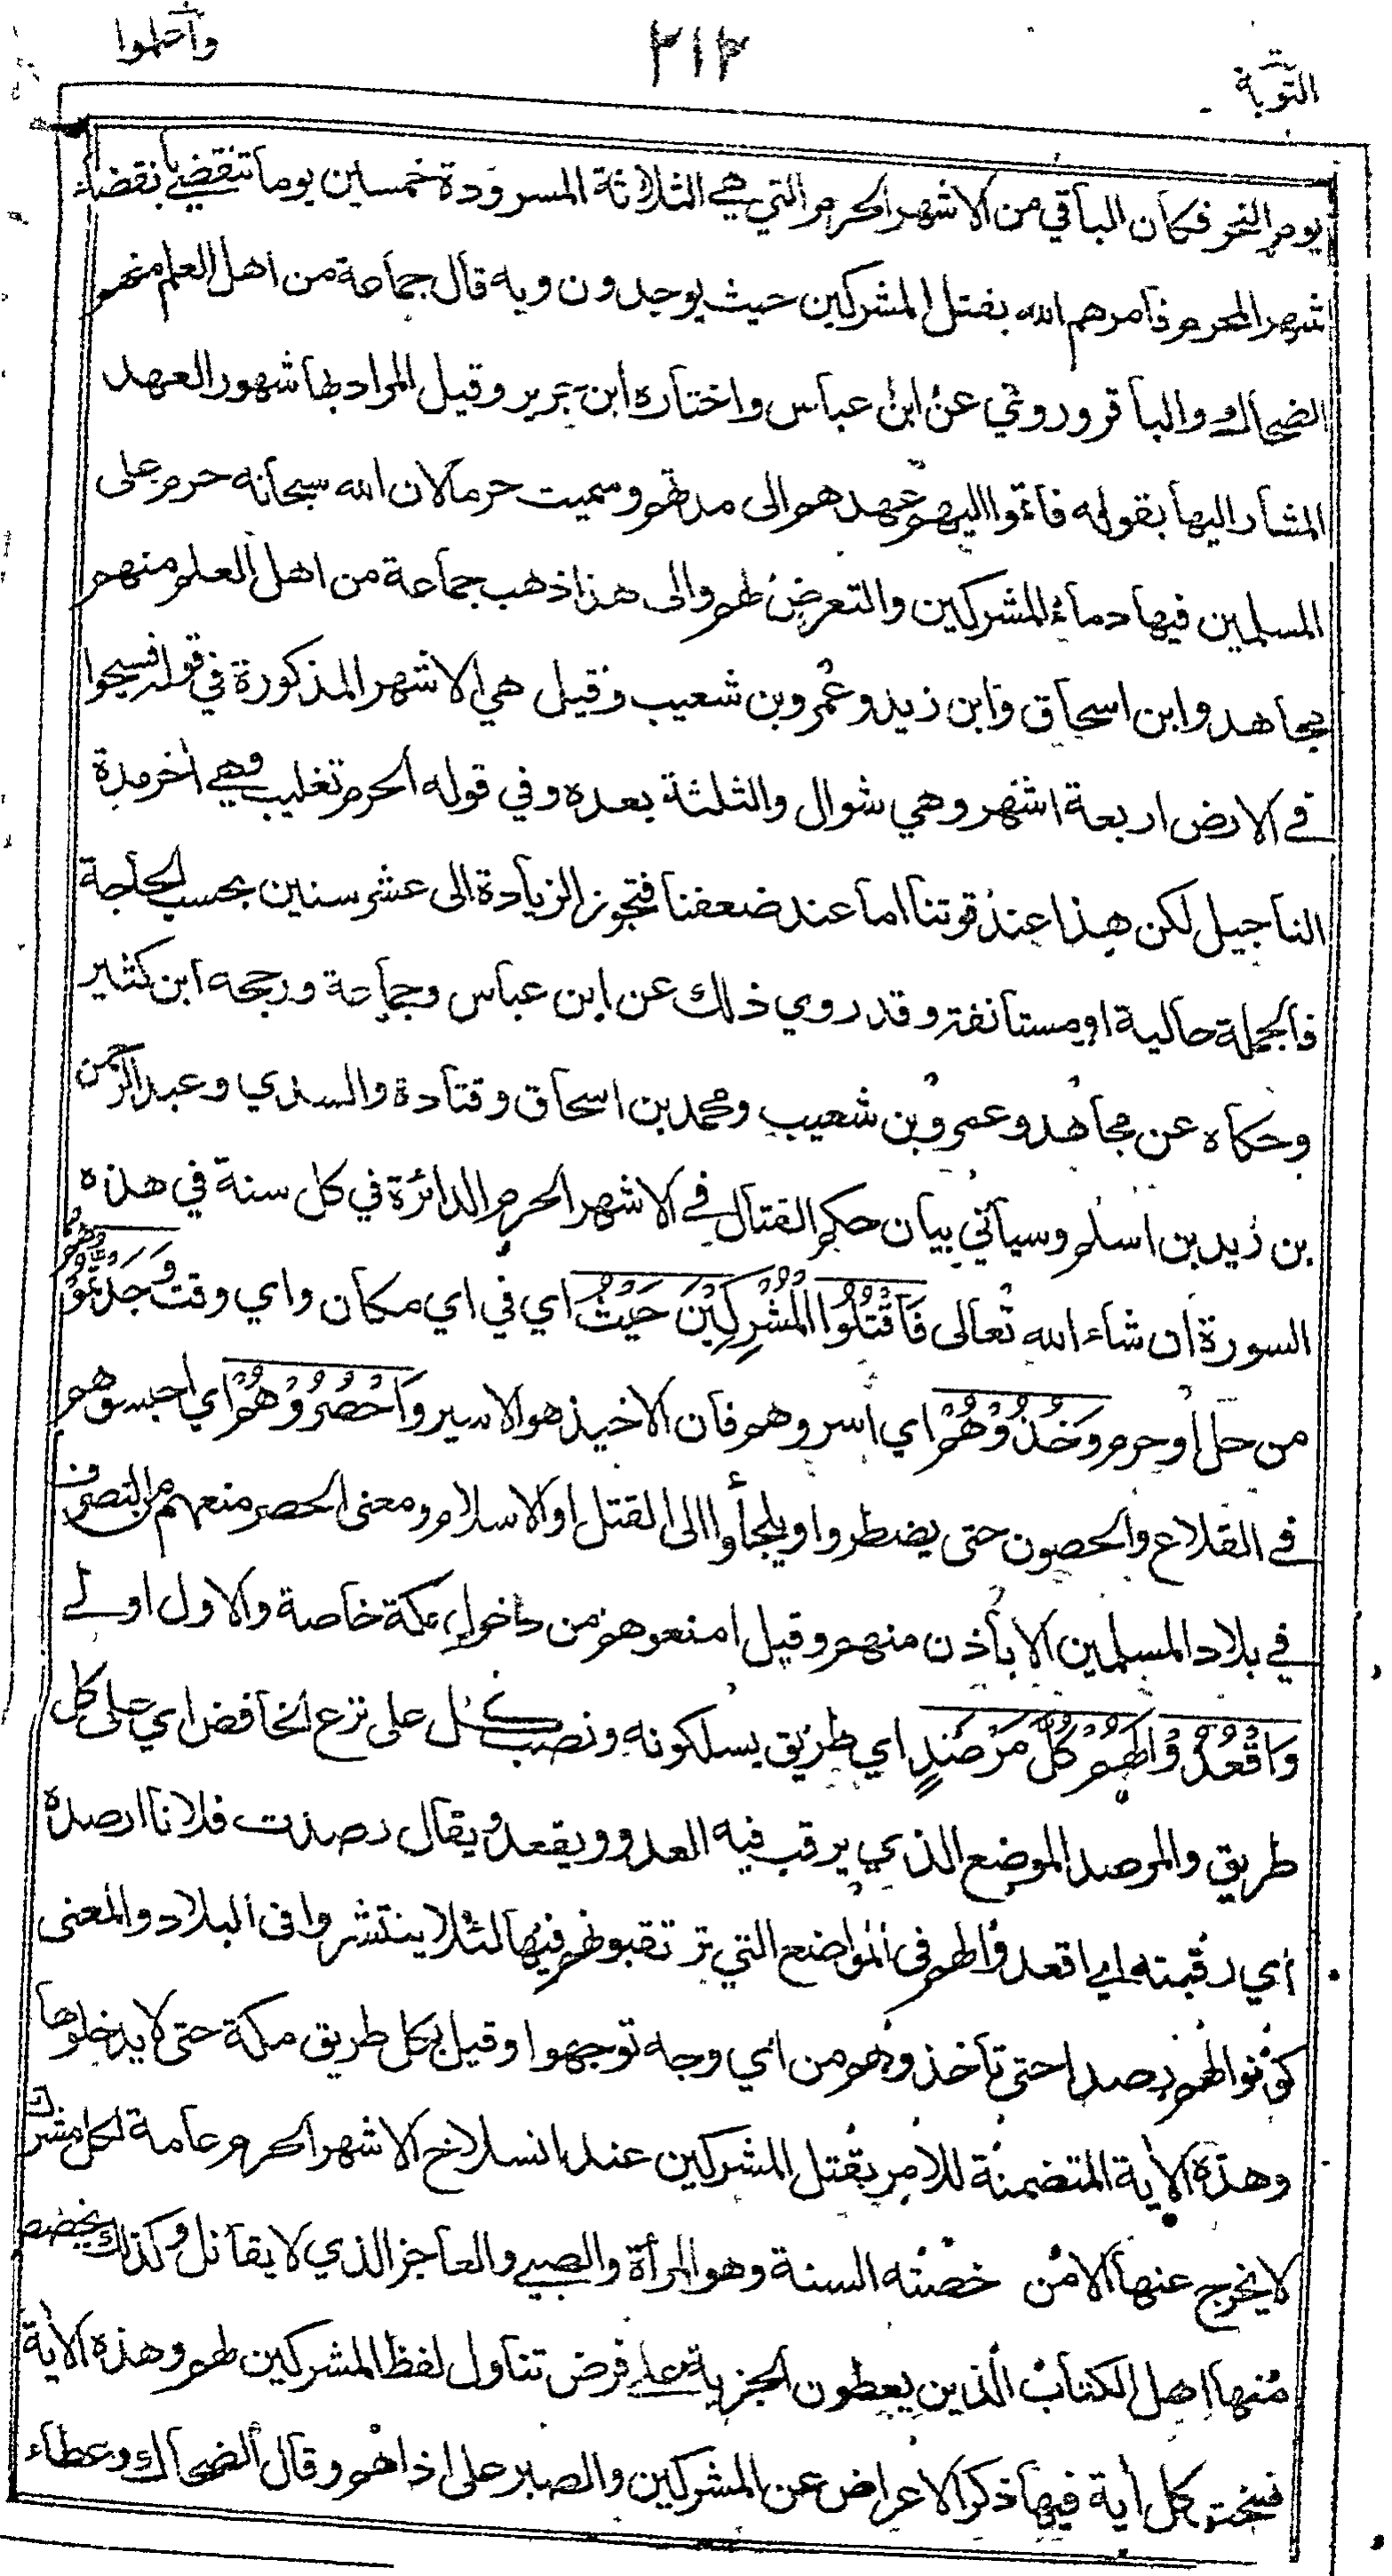 التوبة ٢١٢ واعلموا
يوم النحر فكان الباقي من الاشهر الحرم التي هي الثلاثة المسرودة خمسين يوما تنقضي بانقضاء
شهر المحرم فامرهم الله بقتل المشركين حيث يوجدون وبه قال جماعة من اهل العلم منهم
الضحاك والباقر وروي عن ابن عباس واختاره ابن جرير وقيل المراد بها شهور العهد
المشار اليها بقوله فاتموا اليهم عهدهم الى مدتهم وسميت حرما لان الله سبحانه حرم على
المسلمين فيها دماء المشركين والتعرض لهم والى هذا ذهب جماعة من اهل العلم منهم
مجاهد وابن اسحاق وابن زيد وعمرو بن شعيب وقيل هي الاشهر المذكورة في قوله فسيحوا
في الارض اربعة اشهر وهي شوال والثلثة بعده وفي قوله الحرم تغليب وهي اخر مدة
التاجيل لكن هذا عند قوتنا اما عند ضعفنا فتجوز الزيادة الى عشر سنين بحسب الحاجة
فالجملة حالية او مستانفة وقد روي ذلك عن ابن عباس وجماعة ورجحه ابن كثير
وحكاه عن مجاهد وعمرو بن شعيب ومحمد بن اسحاق وقتادة والسدي وعبد الرحمن
بن زيد بن اسلم وسياتي بيان حكم القتال في الاشهر الحرم الدائرة في كل سنة في هذه
السورة ان شاء الله تعالى فَاقْتُلُوا الْمُشْرِكِيْنَ حَيْثُ اي في اي مكان واي وقت وَجَدْتُمُوْهُمْ
من حل او حرم وَخُذُوْهُمْ اي اسروهم فان الاخيذ هو الاسير وَاحْصُرُوْهُمْ اي احبسوهم
في القلاع والحصون حتى يضطروا ويلجأوا الى القتل او الاسلام ومعنى الحصر منعهم من التصرف
في بلاد المسلمين الا باذن منهم وقيل امنعوهم من دخول مكة خاصة والاول اولى
وَاقْعُدُوْا لَهُمْ كُلَّ مَرْصَدٍ اي طريق يسلكونه ونصب كل على نزع الخافض اي على كل
طريق والمرصد الموضع الذي يرقب فيه العدو ويقعد ويقال رصدت فلانا ارصده
اي رقبته اي اقعدوا لهم في المواضع التي ترتقبونهم فيها لئلا ينتشروا في البلاد والمعنى
كونوا لهم رصدا حتى تاخذوهم من اي وجه توجهوا وقيل بكل طريق مكة حتى لا يدخلوها
وهذه الاية المتضمنة للامر بقتل المشركين عند انسلاخ الاشهر الحرم عامة لكل مشرك
لا يخرج عنها الا من خصته السنة وهو المرأة والصبي والعاجز الذي لا يقاتل وكذلك يخصص
منها اهل الكتاب الذين يعطون الجزية على فرض تناول لفظ المشركين لهم وهذه الاية
نسخت كل اية فيها ذكر الاعراض عن المشركين والصبر على اذاهم وقال الضحاك وعطاء